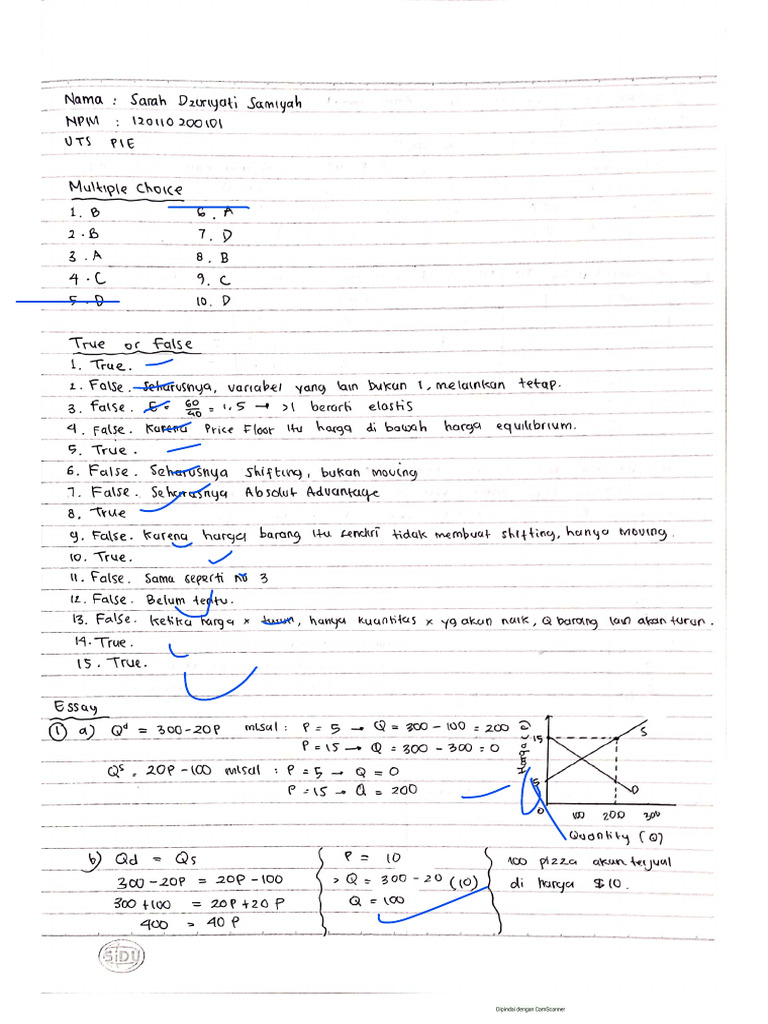 Nama : Sarah Dzuriyati Samiyah
NPM : 120110200101
UTS PIE
Multiple Choice
1. B
2. B
3. A
4. C
5. D
6. A
7. D
8. B
9. C
10. D
True or False
1. True.
2. False. Seharusnya, variabel yang lain bukan 1, melainkan tetap.
3. False. E = 60/40 = 1,5 → >1 berarti elastis
4. False. Karena Price Floor itu harga di bawah harga equilibrium.
5. True.
6. False. Seharusnya Shifting, bukan moving
7. False. Seharusnya Absolut Advantage
8. True
9. False. Karena harga barang itu sendiri tidak membuat shifting, hanya moving.
10. True.
11. False. Sama seperti no 3
12. False. Belum tentu.
13. False. Ketika harga x turun, hanya kuantitas x yg akan naik, Q barang lain akan turun.
14. True.
15. True.
Essay
1 a) Qd = 300-20P misal : P = 5 → Q = 300 - 100 = 200
P = 15 → Q = 300 - 300 = 0
Qs = 20P - 100 misal : P = 5 → Q = 0
P = 15 → Q = 200
Harga (P)
15
5
0
100 200 300
S
D
Quantity (Q)
b) Qd = Qs
300 - 20P = 20P - 100
300 + 100 = 20P + 20P
400 = 40P
P = 10
> Q = 300 - 20 (10)
Q = 100
100 pizza akan terjual
di harga $10.
SiDU
Dipindai dengan CamScanner